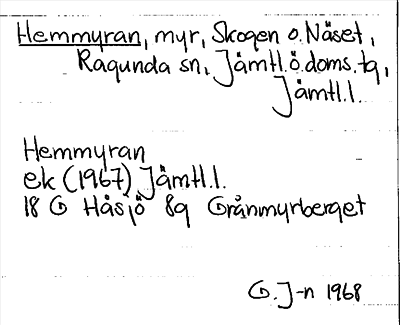 Hemmyran, myr, Skogen o. Näset,
Ragunda sn, Jämtl.ö.doms.tg,
Jämtl.l.
Hemmyran
ek (1967) Jämtl.l.
18 G Håsjö 8g Grånmyrberget
G. J-n 1968